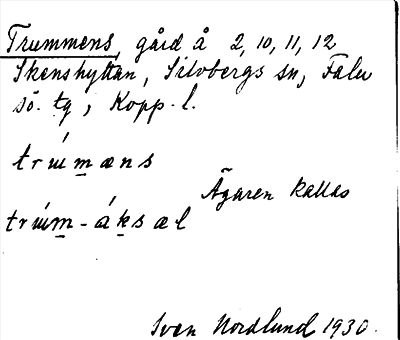 Trummens, gård å 2, 10, 11, 12
Skenshyttan, Silvbergs sn, Falu
sö. tg, Kopp. l.
trúmæns
Ägaren kallas
trúm-áksæl
Sven Nordlund 1930.